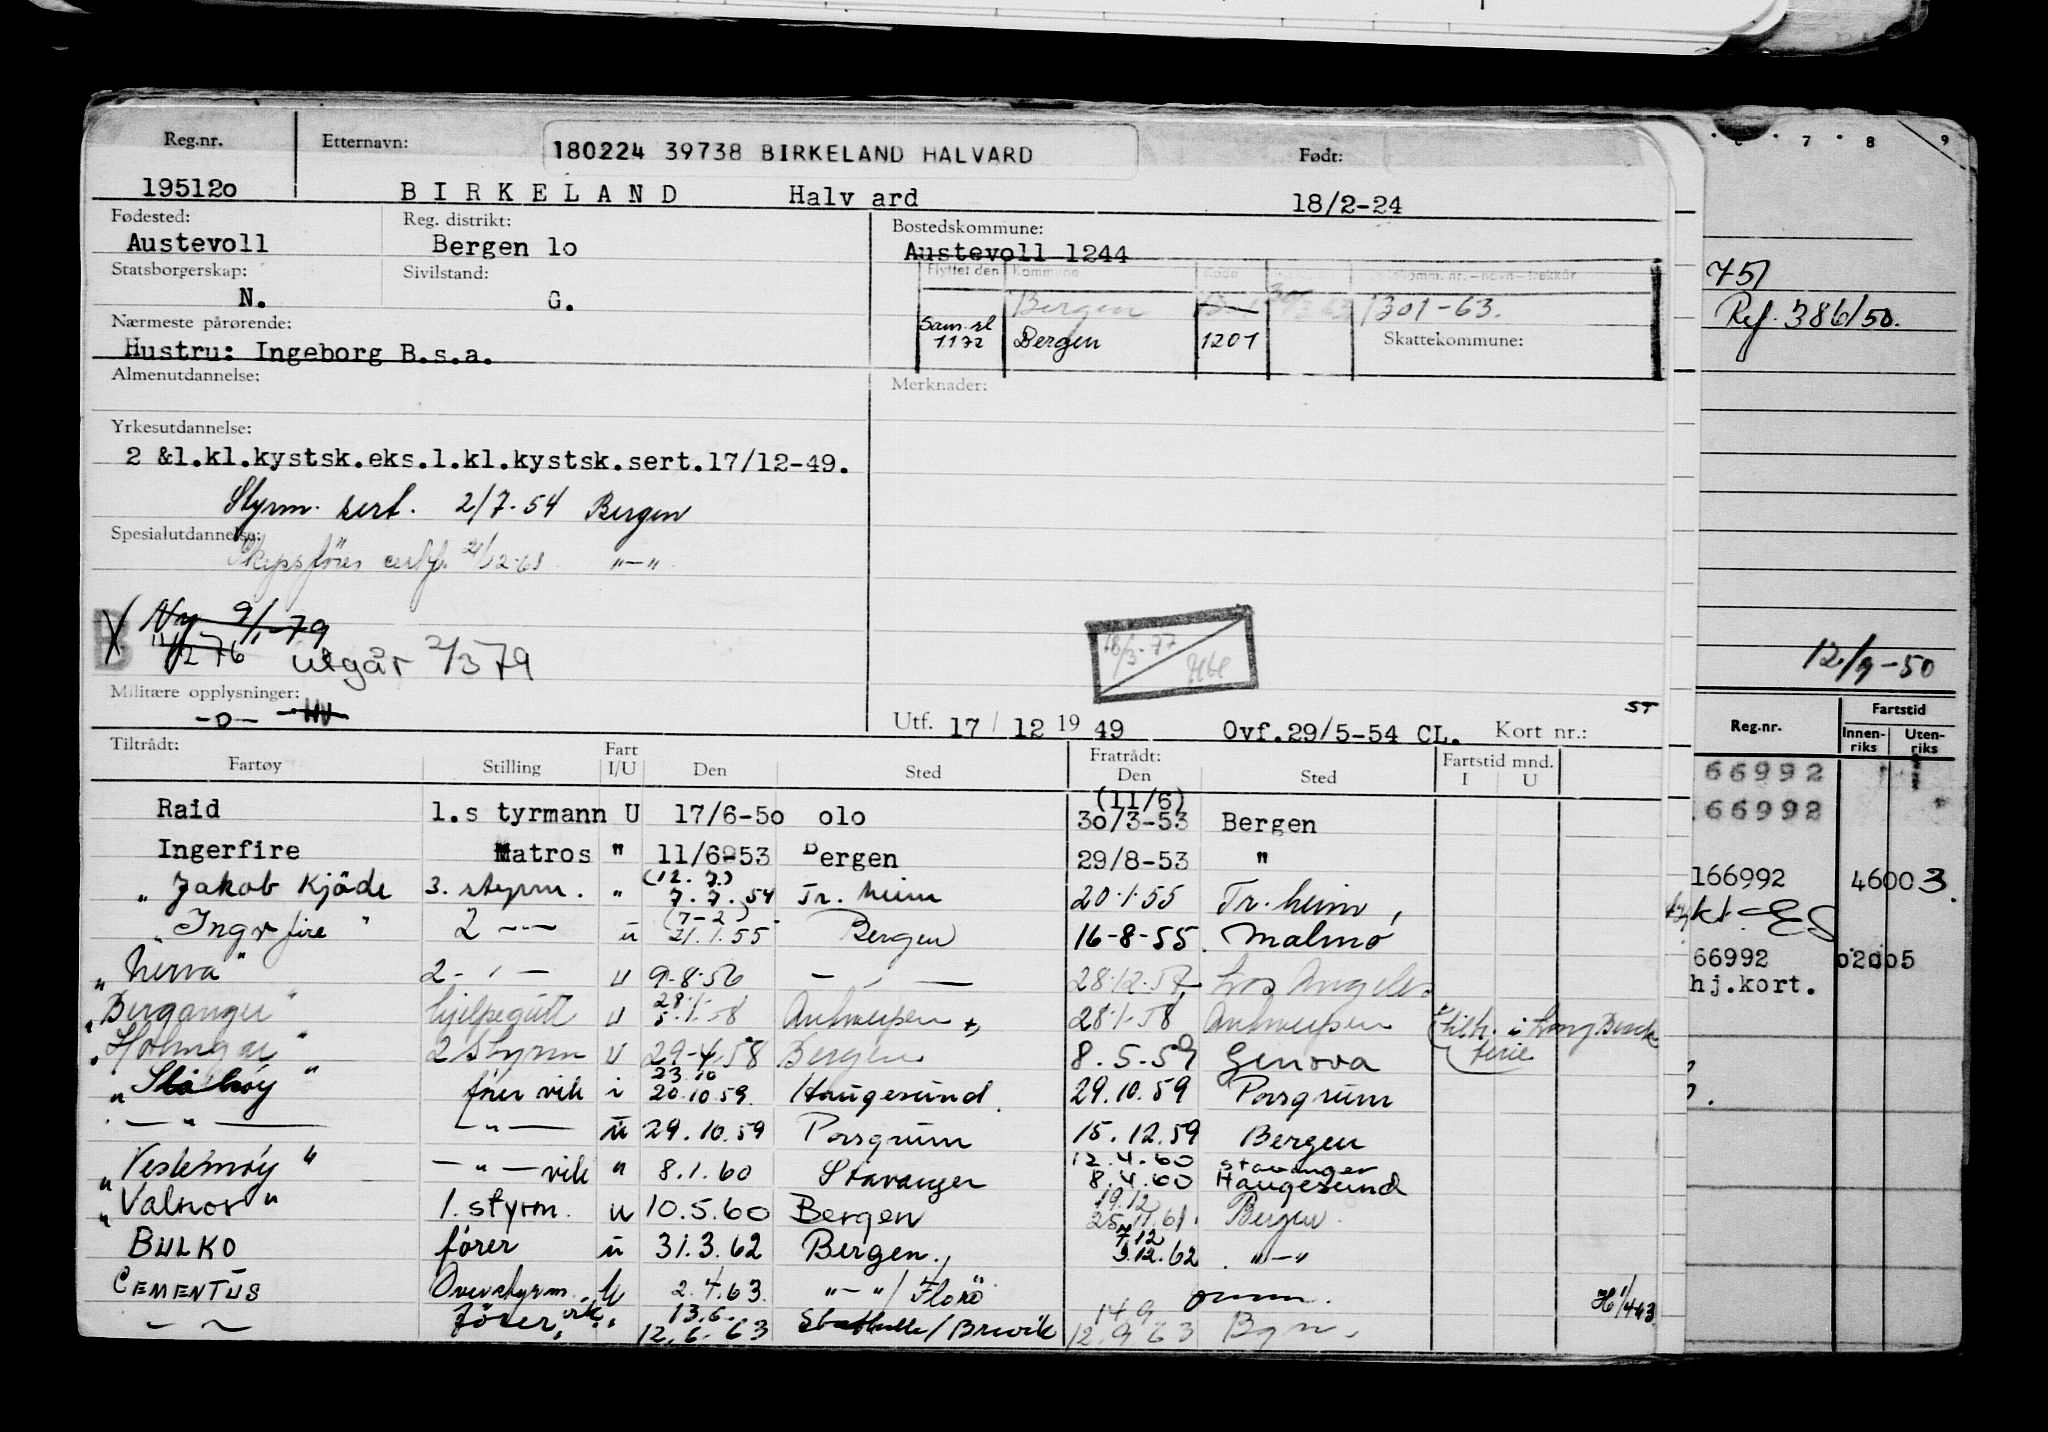 Reg.nr. Etternavn: 180224 39738 BIRKELAND HALVARD Født:
195120 BIRKELAND Halv ard 18/2-24
Fødested: Reg. distrikt: Bostedskommune:
Austevoll Bergen lo Austevoll 1244
Statsborgerskap: Sivilstand: Flyttet den Kommune Kode
N. G. Bergen 1301-63.
Nærmeste pårørende: Sam.sl 1172 Bergen 1201 Skattekommune:
Hustru: Ingeborg B.s.a.
Almenutdannelse: Merknader:
Yrkesutdannelse:
2 &l.kl.kystsk.eks.l.kl.kystsk.sert.17/12-49.
Styrm. sert. 2/7-54 Bergen
Spesialutdannelse:
Skipsfører "—"
B 9/1-79
utgår 2/3 79
18/3-77
Militære opplysninger:
-o- HV
Utf. 17/12 1949 Ovf.29/5-54 CL. Kort nr.: ST
Tiltrådt: Fart Fratrådt: Fartstid mnd.
Fartøy Stilling I/U Den Sted Den Sted I U
(11/6)
Raid l.s tyrmann U 17/6-50 olo 30/3-53 Bergen
Ingerfire Matros " 11/6-53 Bergen 29/8-53 "
(12.7.)
"Jakob Kjöde 3. styrm. " 7.7.54 Tr. heim 20.1.55 Tr. heim,
(7-2)
"Ingerfire" 2 -"- u 21.1.55 Bergen 16-8-55. Malmö
"Nerva" 2-"- u 9-8-56 -"- 28.12.57 Los Angeles
28.1.
"Berganger" hjelpegutt u 5.1.58 Antwerpen 28.1.58 Antwerpen
"Holmgar" 2 Styrm u 29-4.58 Bergen 8.5.59 Genova ferie
23.10
fører vik i 20.10.59. Haugesund. 29.10.59 Porsgrunn
-"- -"- u 29.10.59 Porsgrunn 15.12.59 Bergen
12.4.60 Stavanger
"Vestemøy" -"- vik " 8.1.60 Stavanger 8.4.60 Haugesund
19.12
"Valnor" 1. styrm. u 10.5.60 Bergen 25.11.61. Bergen.
7.12
BULKO fører u 31.3.62 Bergen., 3.12.62 "-"
CEMENTUS Overstyrm. U 2.4.63. "-"/Florö
13.6. 14 9
-"- Fører vik. " 12.6.63 Stathelle/Brevik 12.9 63 Bgn.
7 8 9
751
Ref. 386/50.
12/9-50
Reg.nr. Fartstid
Innen-riks Uten-riks
66992
66992
166992 46003
kt.
66992 02005
hj.kort.